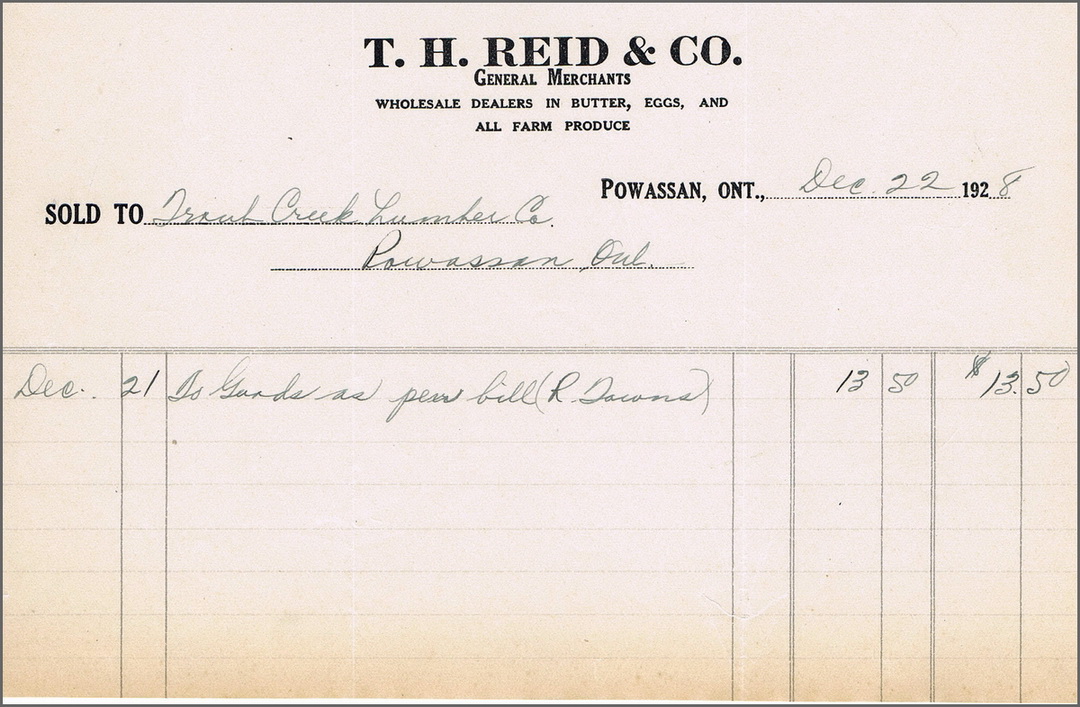 T. H. REID & CO.
GENERAL MERCHANTS
WHOLESALE DEALERS IN BUTTER, EGGS, AND
ALL FARM PRODUCE
POWASSAN, ONT., Dec. 22 1928
SOLD TO Trout Creek Lumber Co.
Powassan Ont.
Dec. 21 To Goods as per bill (R. Towns) 13 50 $13.50